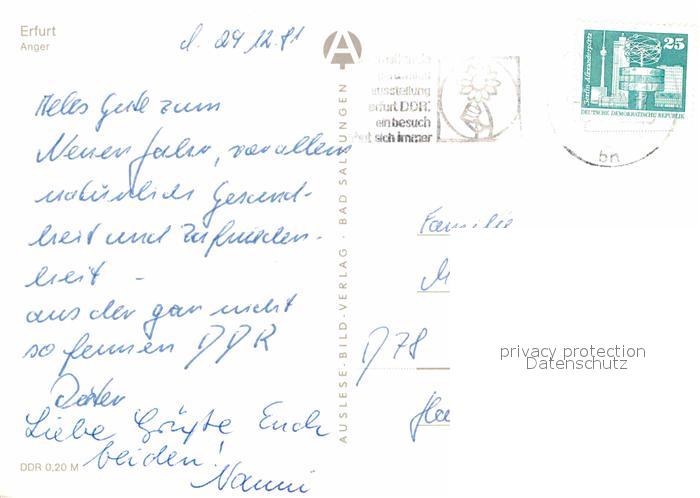 Erfurt
Anger
d. 29 12. 81
Alles Gute zum
Neuen Jahr, vor allem
natürlich Gesund-
heit und Zufrieden-
heit -
aus der gar nicht
so fernen DDR
Dieter
Liebe Grüße Euch
beiden!
Nanni
DDR 0,20 M
AUSLESE-BILD-VERLAG · BAD SALZUNGEN
ausstellung
erfurt DDR.
ein besuch
sich immer
25
Berlin, Alexanderplatz
DEUTSCHE DEMOKRATISCHE REPUBLIK
bn
Familie
M
D 78
privacy protection
Datenschutz